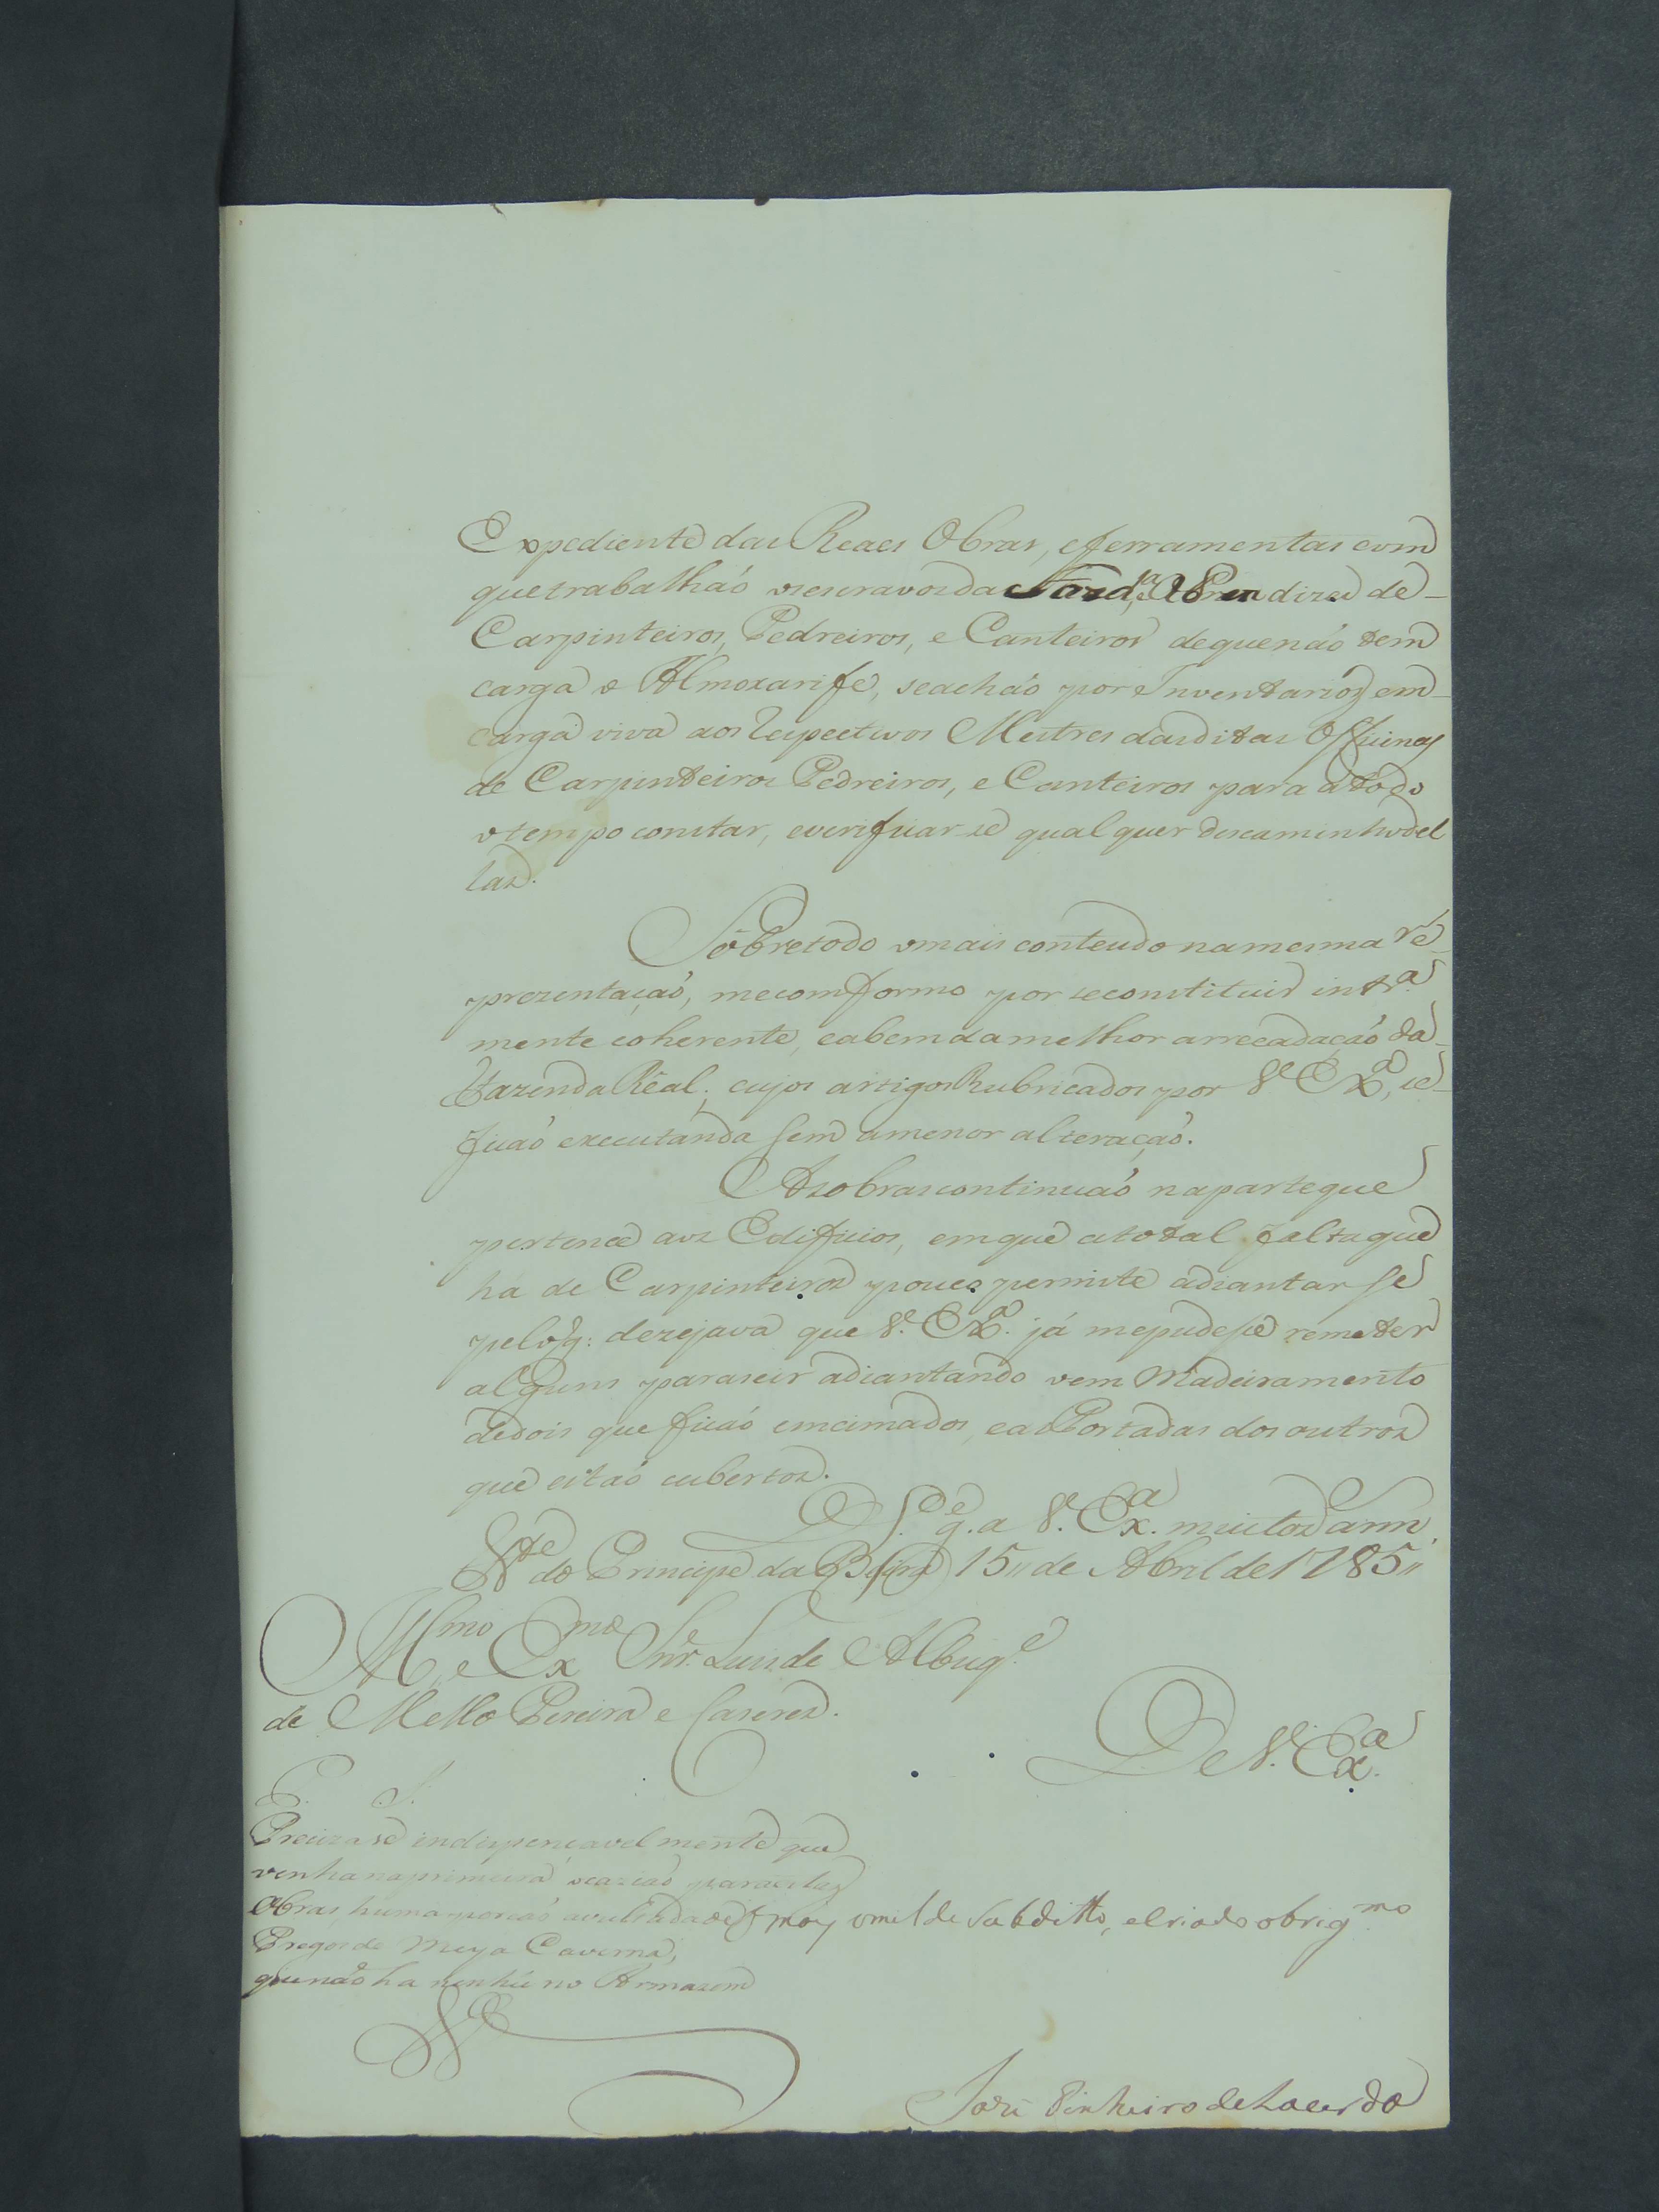 Expediente das Reaes Obras, eferramentas com
quetrabalhaó osescravosda Fazd.ª, Aprendizes de
Carpinteiros, Pedreiros, e Canteiros dequenaó tem
carga o Almoxarife, seachaó por Inventarios em
carga viva aos respectivos Mestres dasditas Officinas
de Carpinteiros Pedreiros, e Canteiros para atodo
otempo constar, everificarse qualquer descaminhodel
las.
Sobretodo omais conteudo namesma re
prezentaçaó, mecomformo por seconstituir intr.ª
mente coherente, eabem damelhor arrecadaçaó da
Fazenda Real; cujos artigos Rubricados por V.ª Ex.ª, se
ficaó executando sem amenor alteraçaó.
Asobrascontinuaó naparteque
pertence aos Edificios, emque atotal faltaque
ha de Carpinteiros pouco permite adiantarse
pelo q: dezejava que V. Ex.ª já mepudese remeter
alguns paraseir adiantando oem Madeiramento
dedois que ficaó emcimados, eas Portadas dos outros
que estaó cubertos.
D.s g.e a V. Ex.ª muitos ann.
Fte do Principe da Beira 15,, de Abril de 1785,,
Illmo e Exmo Snr. Luis de Albuq.e
de Mello Pereira e Caseres.
De V. Ex.ª
P. S.
Precizase indispençavelmente que
venhanaprimeira ocaziaó paraestas
Obras, humaporçaó avultada de
Pregos de Meya Caverna,
quenaó ha nenhú no Armazem
omais omilde Subditto, eCriado obrigmo
José Pinheiro deLacerda